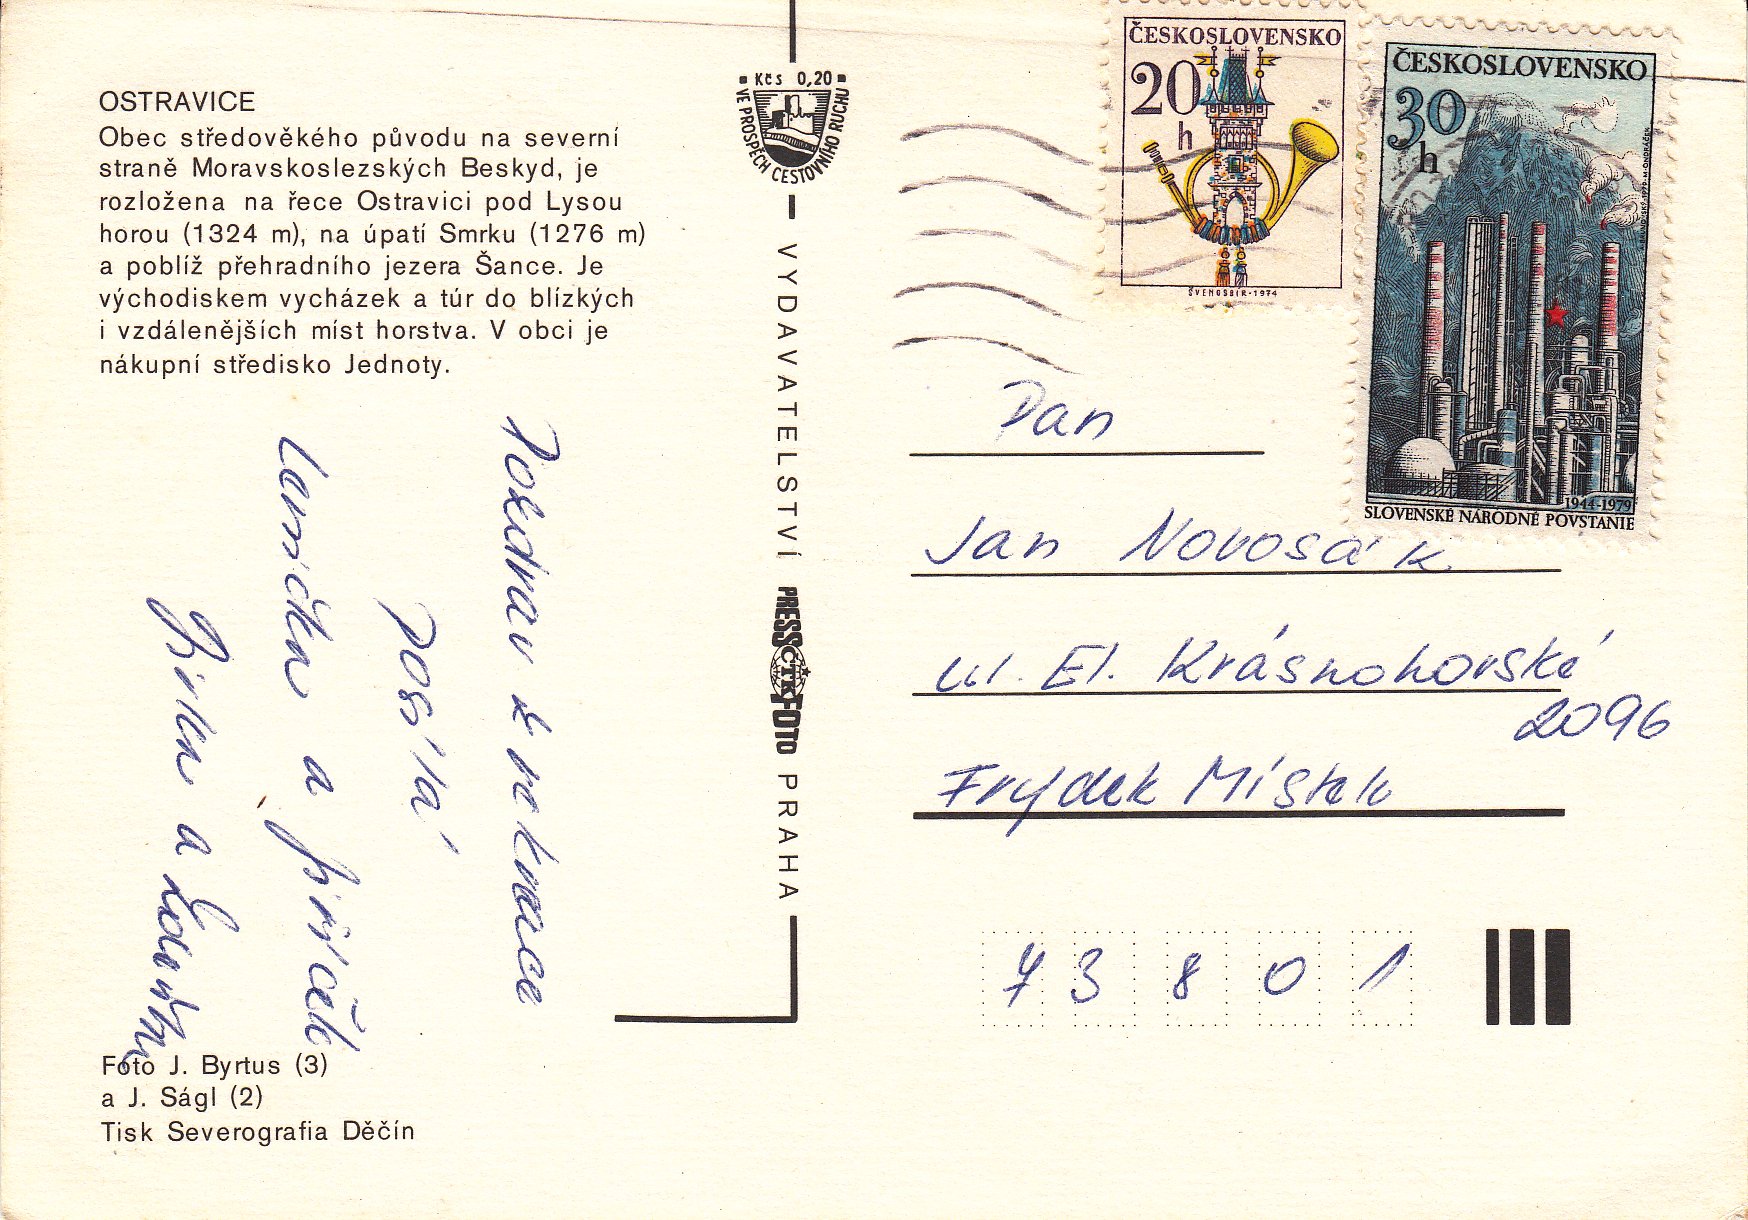 OSTRAVICE
Obec středověkého původu na severní
straně Moravskoslezských Beskyd, je
rozložena na řece Ostravici pod Lysou
horou (1324 m), na úpatí Smrku (1276 m)
a poblíž přehradního jezera Šance. Je
východiskem vycházek a túr do blízkých
i vzdálenějších míst horstva. V obci je
nákupní středisko Jednoty.
Pozdrav z rekreace
posílá
a Jiříček
Jirka a
Foto J. Byrtus (3)
a J. Ságl (2)
Tisk Severografia Děčín
Kčs 0,20
VE PROSPĚCH CESTOVNÍHO RUCHU
VYDAVATELSTVÍ PRESSFOTO PRAHA
ČTK
ČESKOSLOVENSKO
20
h
ŠVENGSBÍR-1974
ČESKOSLOVENSKO
30
h
1944-1979
SLOVENSKÉ NÁRODNÉ POVSTANIE
Pan
Jan Novosák
ul. El. Krásnohorské
2096
Frýdek Místek
73801